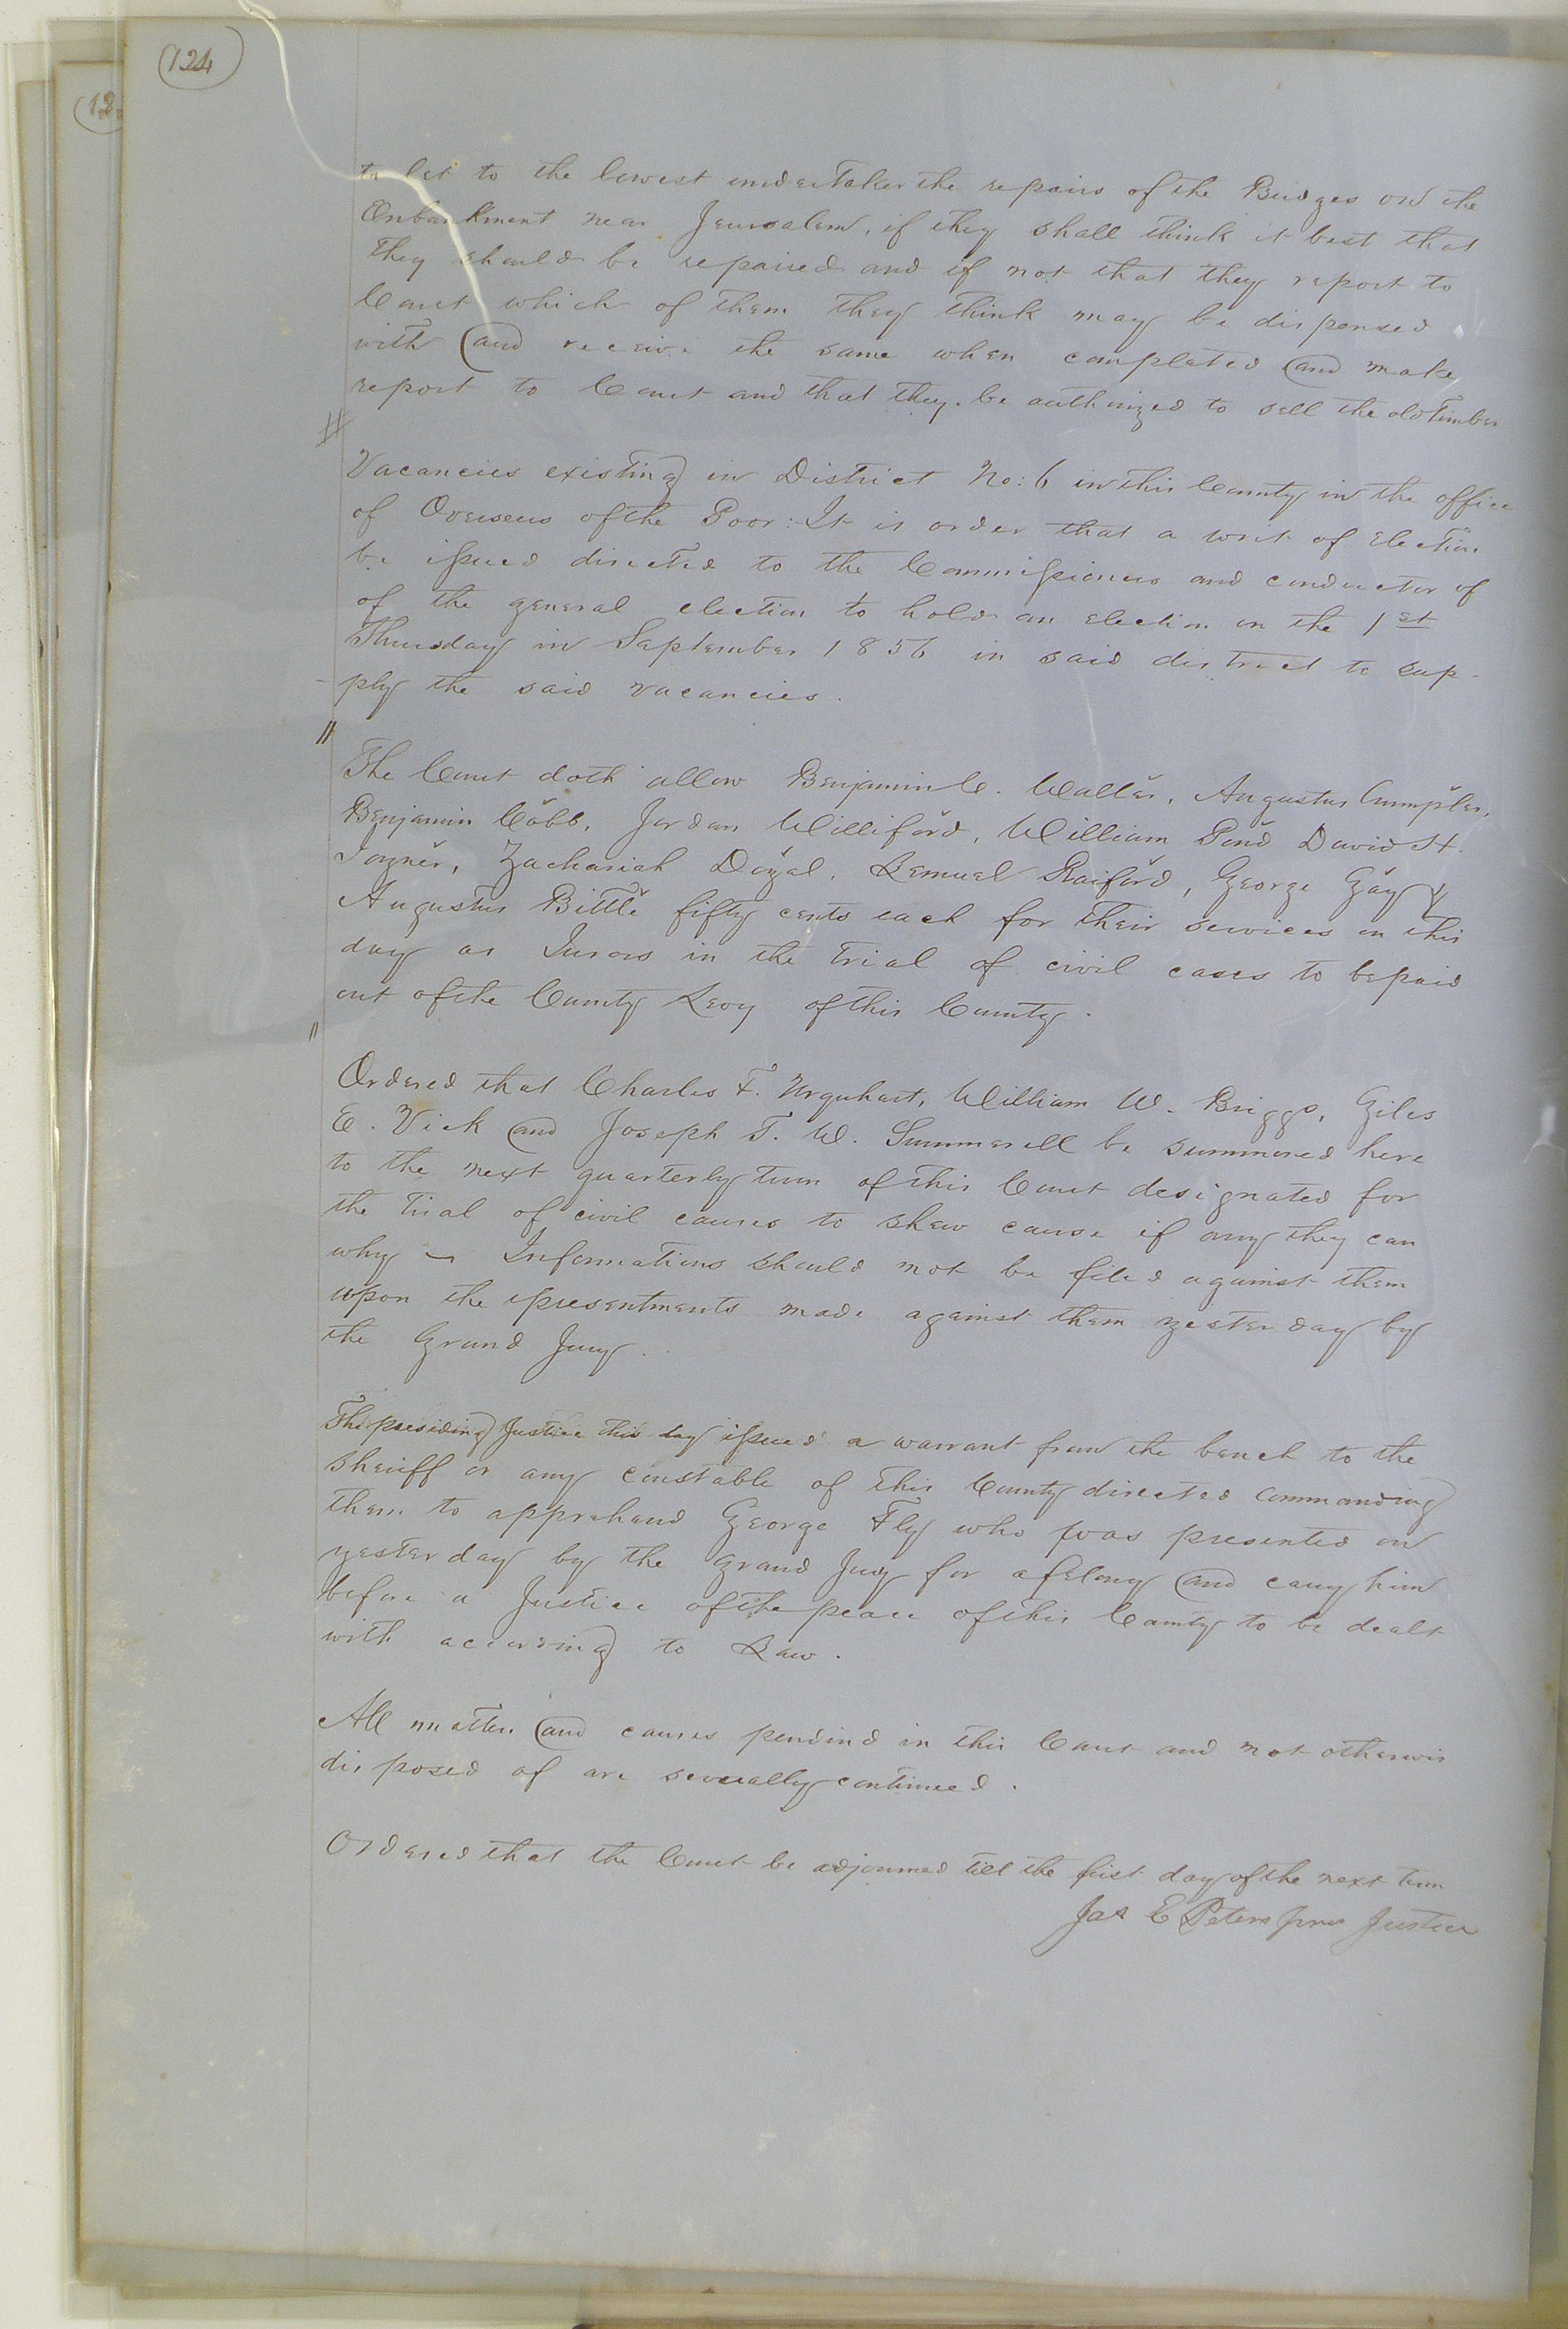 124
12
to let to the lowest undertaker the repairs of the Bridges on the
Onbankment near Jerusalem, if they shall think it best that
they should be repaired and if not that they report to
Court which of them they think may be dispensed
with and receive the same when completed and make
report to Court and that they be authorized to sell the old Timber
Vacancies existing in District No: 6 in this County in the office
of Overseers of the Poor: It is order that a writ of Election
be issued directed to the Commissioners and conductor of
of the general election to hold an election on the 1st
Thursday in September 1856 in said district to sup-
ply the said vacancies.
The Court doth allow Benjamin C. Waller, Augustus Crumpler,
Benjamin Cobb, Jordan Williford, William Pond David H.
Joyner, Zachariah Doyal, Lemuel Raiford, George Gay &
Augustus Bittle fifty cents each for their services on this
day as Jurors in the trial of civil cases to be paid
out of the County Levy of this County.
Ordered that Charles F. Urquhart, William W. Briggs, Giles
E. Vick and Joseph T. W. Summerell be summoned here
to the next quarterly term of this Court designated for
the trial of civil causes to shew cause if any they can
why Informations should not be filed against them
upon the presentments made against them yesterday by
the Grand Jury.
The presiding Justice this day issued a warrant from the bench to the
sheriff or any constable of this County directed commanding
them to apprehend George Fly who was presented on
yesterday by the Grand Jury for a felony and carry him
before a Justice of the peace of this County to be dealt
with according to Law.
All matters and causes pendind in this Court and not otherwis
disposed of are severally continued.
Ordered that the Court be adjourned till the first day of the next term
Jas E Peters pres Justice